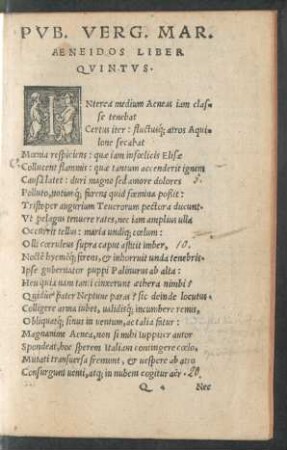 PVB. VERG. MAR.
AENEIDOS LIBER
QVINTVS.
INterea medium Aeneas iam clas-
se tenebat
Certus iter: fluctusq́; atros Aqui-
lone secabat
Mœnia respiciens: quæ iam infœlicis Elisæ
Collucent flammis: quæ tantum accenderit ignem
Causa latet: duri magno sed amore dolores 5.
Polluto, notumq́; furens quid fœmina possit:
Triste per augurium Teucrorum pectora ducunt.
Vt pelagus tenuere rates, nec iam amplius ulla
Occurrit tellus: maria undiq; cœlum:
Olli cœruleus supra caput astitit imber, 10.
Noctẽ hyemẽq́; ferens, & inhorruit unda tenebris.
Ipse gubernator puppi Palinurus ab alta:
Heu quia nam tanti cinxerunt æthera nimbi?
Quidue pater Neptune paras? sic deinde locutus
Colligere arma iubet, ualidisq́; incumbere remis,
Obliquatq́; sinus in uentum, ac talia fatur:
Magnanime Aenea, non si mihi iuppiter autor
Spondeat, hoc sperem Italiam contingere cœlo,
Mutati transuersa fremunt, & uespere ab atro
Consurgunt uenti, atq; in nubem cogitur aër. 20.
Q 4 Nec